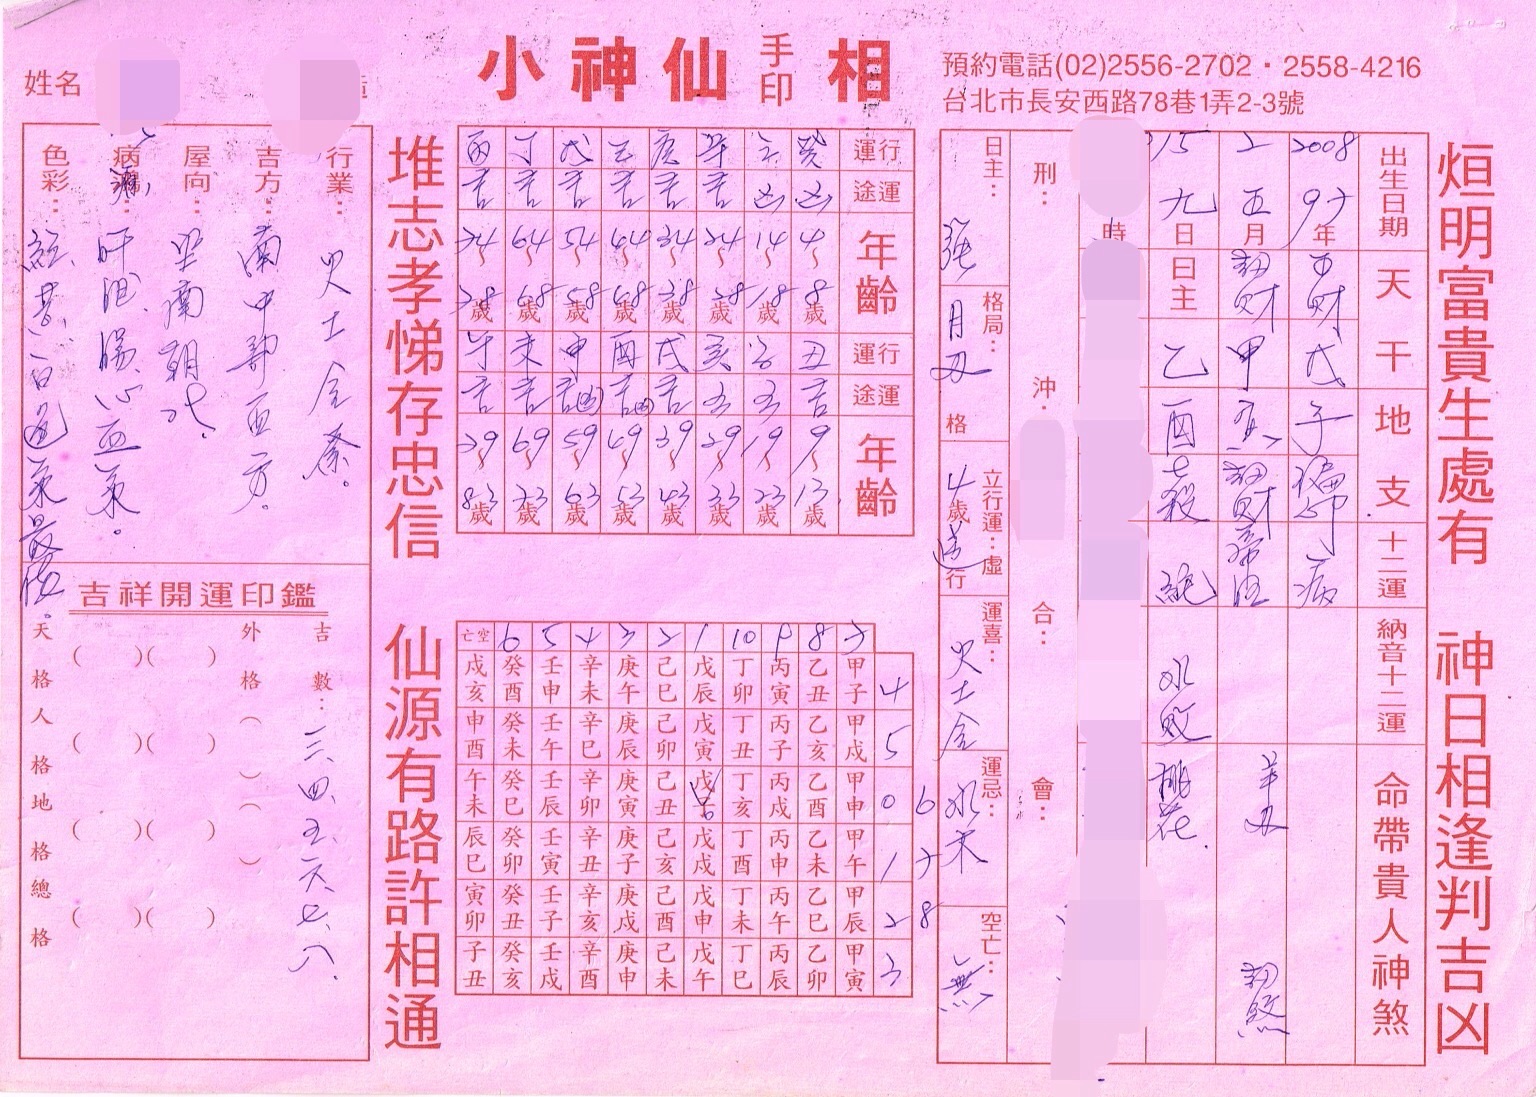 小神仙 手印 相
預約電話(02)2556-2702・2558-4216
台北市長安西路78巷1弄2-3號
烜明富貴生處有 神日相逢判吉凶
堆志孝悌存忠信 仙源有路許相通
出生日期 2008 97年 2 五月 15 九日 時
天干 正財 戊 劫財 甲 日主 乙
地支 子 偏印 酉 七殺
十二運 病 帝旺 絕
納音十二運 水 敗
命帶貴人神煞 羊刃 劫煞 桃花
刑: 沖: 合: 會:
日主: 強
格局: 月刃 格
立行運: 4歲 虛 行
運喜: 火土金
運忌: 水木
空亡: 無
運行 癸 壬 辛 庚 己 戊 丁 丙
途運 凶 凶 吉 吉 吉 吉 吉 吉
年齡 4~8歲 14~18歲 24~28歲 34~38歲 44~48歲 54~58歲 64~68歲 74~78歲
運行 丑 子 亥 戌 酉 申 未 午
途運 吉
年齡 9~13歲 19~23歲 29~33歲 39~43歲 49~53歲 59~63歲 69~73歲 79~83歲
空亡 6 5 4 3 2 1 10 9 8 7
戌亥 癸酉 壬申 辛未 庚午 己巳 戊辰 丁卯 丙寅 乙丑 甲子 4
申酉 癸未 壬午 辛巳 庚辰 己卯 戊寅 丁丑 丙子 乙亥 甲戌 5
午未 癸巳 壬辰 辛卯 庚寅 己丑 戊子 丁亥 丙戌 乙酉 甲申 0 6
辰巳 癸卯 壬寅 辛丑 庚子 己亥 戊戌 丁酉 丙申 乙未 甲午 1 7
寅卯 癸丑 壬子 辛亥 庚戌 己酉 戊申 丁未 丙午 乙巳 甲辰 2 8
子丑 癸亥 壬戌 辛酉 庚申 己未 戊午 丁巳 丙辰 乙卯 甲寅 3
姓名 造
行業: 火土金業。
吉方: 南中部西方。
屋向: 坐南朝北。
病瀉: 肝胆腸心血氣。
色彩: 紅、黃、白、
吉祥開運印鑑
吉數: 三、四、五、六、七、八、
外格 ( )
天格 ( ) ( )
人格 ( ) ( )
地格 ( ) ( )
總格 ( ) ( )